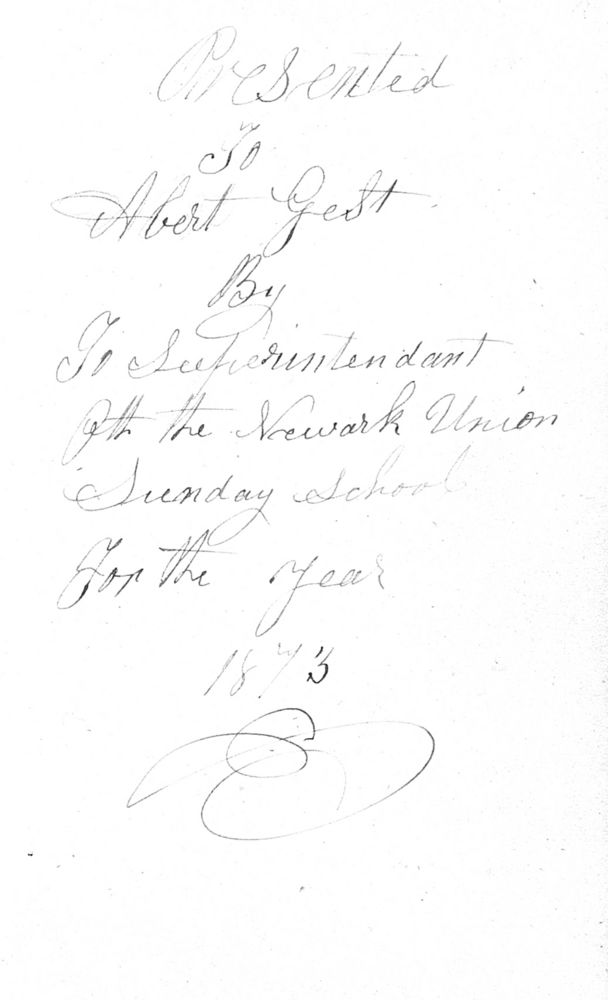 Presented
To
Abert Gest
By
To Superintendant
Oth the Newark Union
Sunday School
For the year
1873